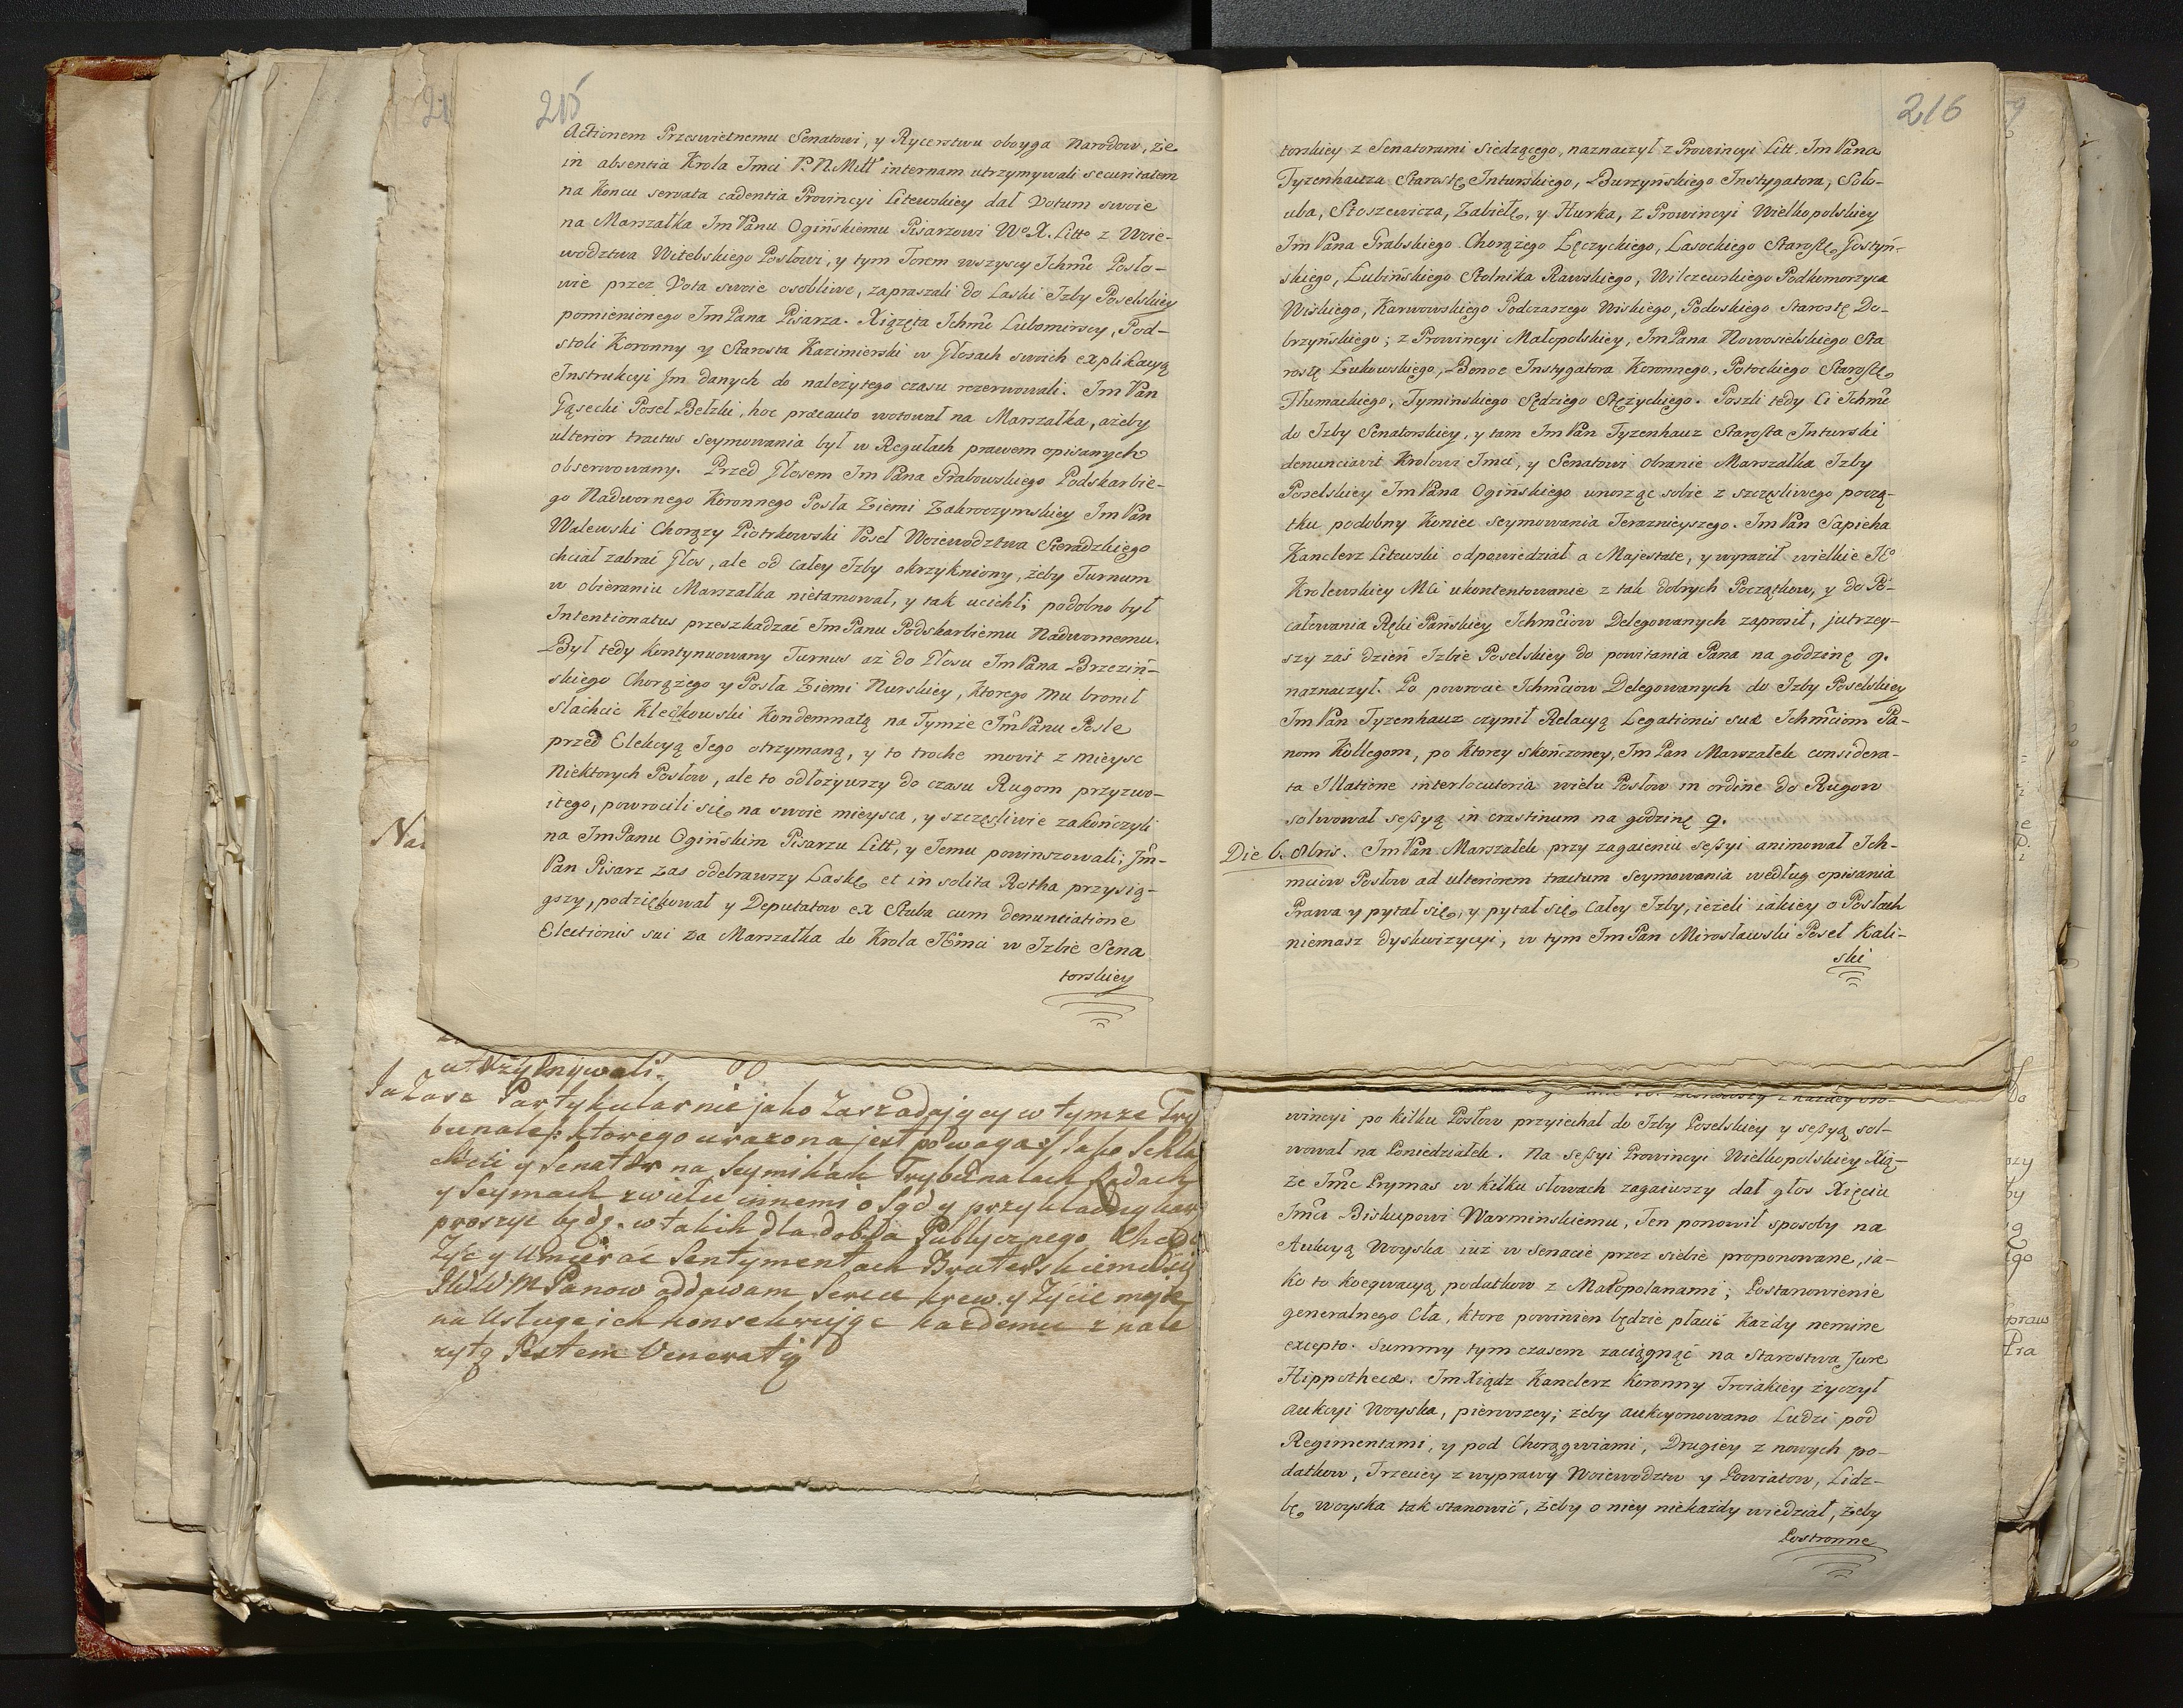 215
Actionem Przeswietnemu Senatowi, y Rycerstwu oboyga Narodow, że
in absentia Krola Jmci P. N. Mił internam utrzymywali securitatem
na Koncu servata cadentia Prowincyi Litewskiey dał Votum swoie
na Marszałka Jm Panu Ogińskiemu Pisarzowi Wo X. Litto z Woie-
wodztwa Witebskiego Posłowi, y tym Torem wszyscy Ichmć Posło-
wie przez Vota swoie osobliwe, zapraszali do Laski Izby Poselskiey
pomienionego Jm Pana Pisarza. Xiążęta Ichmć Lubomirscy, Pod-
stoli Koronny y Starosta Kazimierski w Głosach swoich explikacyą
Instrukcyi Jm danych do należytego czasu rezerwowali. Jm Pan
Gąsecki Poseł Bełzki, hoc præcauto wotował na Marszałka, ażeby
ulterior tractus seymowania był w Regułach prawem opisanych
obserwowany. Przed Głosem Jm Pana Grabowskiego Podskarbie-
go Nadwornego Koronnego Posła Ziemi Zakroczymskiey Jm Pan
Walewski Chorąży Piotrkowski Poseł Woiewodztwa Sieradzkiego
chciał zabrać Głos, ale od całey Izby okrzykniony, żeby Turnum
w obieraniu Marszałka nietamował, y tak ucichł; podobno był
Intentionatus przeszkadzać Jm Panu Podskarbiemu Nadwornemu.
Był tedy kontynuowany Turnus aż do Głosu Jm Pana Brzeziń-
skiego Chorążego y Posła Ziemi Nurskiey, ktorego mu bronił
slachcic Kleczkowski Kondemnatą na Tymże Jm Panu Pośle
przed Elekcyą Jego otrzymaną, y to troche movit z mieysc
Niektorych Posłow, ale to odłożywszy do czasu Rugom przyzwo-
itego, powrocili się na swoie mieysca, y szczęśliwie zakończyli
na Jm Panu Ogińskim Pisarzu Litt, y Jemu powinszowali; Jm-
Pan Pisarz zas odebrawszy Laskę et in solita Rotha przysią-
gszy, podziękował y Deputatow ex Stuba cum denunciatione
Electionis sui za Marszałka do Krola JEmci w Izbie Sena
torskiey
utrzymywali.
Ja zasz Partykularnie jako Zaszadający w tymze Try
bunale /: ktorego urazona jest powaga :/ jako Schla
chcic y Senator na Seymikach Trybunalach Radach
y Seymach z wielu innemi o Sąd y przykładny kar
proszyc będę. w takich dla dobra Publycznego Chcąc
Żyć y Umierac Sentymentach Braterskiem
JWW M Panow oddawam Serce krew y Życie moje
na Usługe ich konsekrując kazdemu z nale
zytą Jestem Veneratią
216
torskiey z Senatorami siedzącego, naznaczył z Prowincyi Litt. Jm Pana
Tyzenhauza Starostę Inturskiego, Burzyńskiego Instygatora, Soło-
uba, Stoszewicza, Zabiełę, y Hurka, z Prowincyi Wielkopolskiey
Jm Pana Grabskiego Chorążego Łęczyckiego, Lasockiego Starostę Gostyń-
skiego, Lubińskiego Stolnika Rawskiego, Wilczewskiego Podkomorzyca
Wiskiego, Karwowskiego Podczaszego Wiskiego, Podoskiego Starostę Do-
brzyńskiego; z Prowincyi Małopolskiey, Jm Pana Nowosielskiego Sta
rostę Łukowskiego, Bonoe Instygatora Koronnego, Potockiego Starostę
Tłumackiego, Tyminskiego Sędziego Stężyckiego. Poszli tedy Ci Ichmć
do Izby Senatorskiey, y tam Jm Pan Tyzenhauz Starosta Inturski
denunciavit Krolowi Jmci, y Senatowi obranie Marszałka Izby
Poselskiey Jm Pana Ogińskiego wnosząc sobie z szczęśliwego począ-
tku podobny Koniec seymowania Teraznieyszego. Jm Pan Sapieha
Kanclerz Litewski odpowiedział a Majestate, y wyraził wielkie Jo
Krolewskiey Mci ukontentowanie z tak dobrych Początkow, y do Po-
całowania Ręki Pańskiey Ichmciow Delegowanych zaprosił, jutrzey-
szy zaś dzień Izbie Poselskiey do powitania Pana na godzinę 9.
naznaczył. Po powrocie Ichmciow Delegowanych do Izby Poselskiey
Jm Pan Tyzenhauz czynił Relacyą Legationis suæ Ichmciom Pa-
nom Kollegom, po ktorey skończoney, Jm Pan Marszałek considera-
ta Illatione interlocutoria wielu Posłow in ordine do Rugow
solwował seßyą in crastinum na godzinę 9.
Die 6. 8bris. Jm Pan Marszałek przy zagaieniu seßyi animował Ich-
mciow Posłow ad ulteriorem tractum Seymowania według opisania
Prawa y pytał się, y pytał się Całey Izby, ieżeli iakiey o Posłach
niemasz dyskwizycyi, w tym Jm Pan Mirosławski Poseł Kali-
ski
wincyi po kilku Posłow przyiechał do Izby Poselskiey y seßyą sol-
wował na Poniedziałek. Na seßyi Prowincyi Wielkopolskiey Xią-
że Jmć Prymas w kilku słowach zagaiwszy dał głos Xięciu
Jmci Biskupowi Warminskiemu, Ten ponowił sposoby na
Aukcyą Woyska iuż w Senacie przez siebie proponowane, ia-
ko to koequacyą podatkow z Małopolanami; Postanowienie
generalnego Cła, ktore powinien będzie płacić każdy nemine
excepto. Summy tym czasem zaciągnąć na Starostwa Jure
Hippothecæ. Jm Xiądz Kanclerz Koronny Troiakiey życzył
aukcyi Woyska, pierwszey; żeby aukcyonowano Ludzi pod
Regimentami, y pod Chorągwiami, Drugiey z nowych po-
datkow, Trzeciey z wyprawy Woiewodztw y Powiatow, Lidz-
bę woyska tak stanowić, żeby o niey niekażdy wiedział, żeby
Postronne